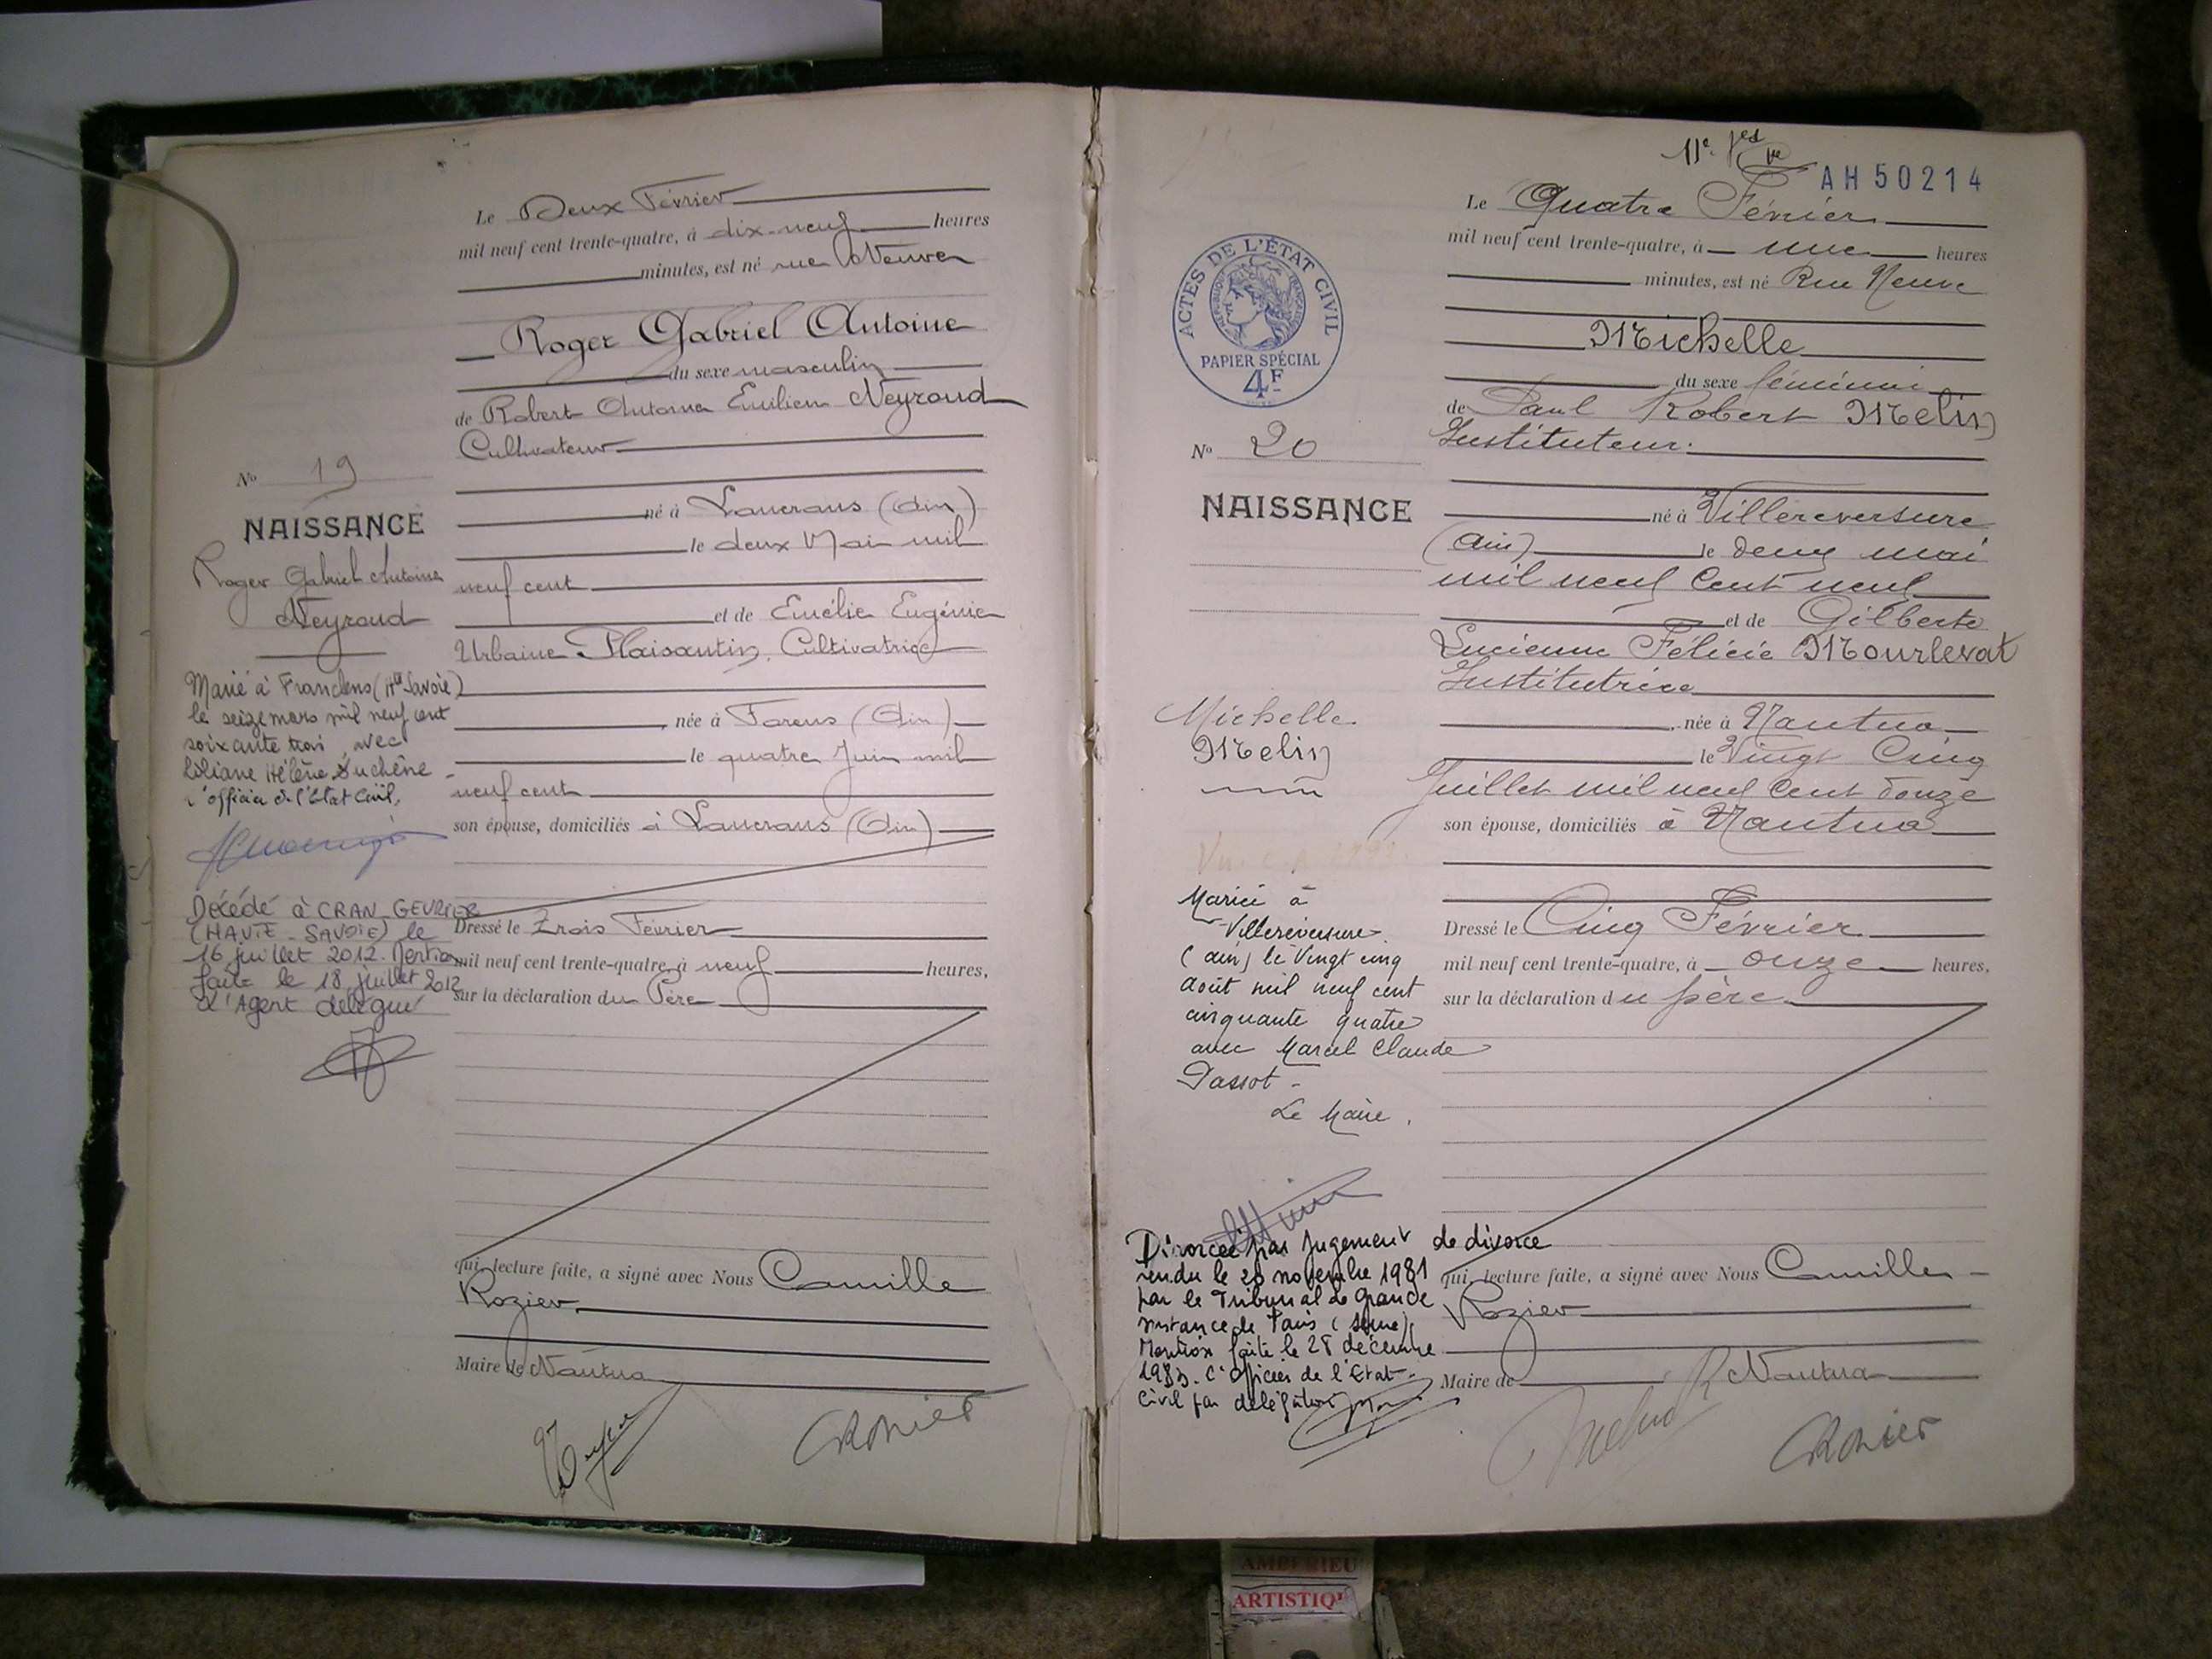 Le Deux Février
mil neuf cent trente-quatre, à dix-neuf heures
minutes, est né rue Neuve
Roger Gabriel Antoine
du sexe masculin
de Robert Antoine Emilien Neyroud
Cultivateur
né à Lancrans (Ain)
le deux Mai mil
neuf cent
et de Emélie Eugénie
Urbaine Plaisantin, Cultivatrice
née à Farens (Ain)
le quatre Juin mil
neuf cent
son épouse, domiciliés à Lancrans (Ain)
Dressé le Trois Février
mil neuf cent trente-quatre, à neuf heures,
sur la déclaration du Père
qui, lecture faite, a signé avec Nous Camille
Rozier
Maire de Nantua
CRozier
No 19
NAISSANCE
Roger Gabriel Antoine
Neyroud
Marié à Franclens (Hte Savoie)
le seize mars mil neuf cent
soixante trois, avec
Liliane Hélène Duchêne
l'officier de l'Etat Civil,
Décédé à CRAN-GEVRIER
(HAUTE-SAVOIE) le
16 juillet 2012. Mention
faite le 18 juillet 2012
L'Agent délégué
AH50214
Le Quatre Février
mil neuf cent trente-quatre, à une heures
minutes, est né Rue Neuve
Michelle
du sexe féminin
de Paul Robert Melin
Instituteur.
né à Villereversure
(Ain) le deux mai
mil neuf cent neuf
et de Gilberte
Lucienne Félicie Mourlevat
Institutrice
née à Nantua
le Vingt Cinq
Juillet mil neuf cent douze
son épouse, domiciliés à Nantua
Dressé le Cinq Février
mil neuf cent trente-quatre, à onze heures,
sur la déclaration du père
qui, lecture faite, a signé avec Nous Camille
Rozier
Maire de Nantua
CRozier
ACTES DE L'ÉTAT CIVIL
RÉPUBLIQUE FRANÇAISE
PAPIER SPÉCIAL
4F
No 20
NAISSANCE
Michelle
Melin
Mariée à
Villereversure
(Ain) le Vingt cinq
Août mil neuf cent
cinquante quatre
avec Marcel Claude
Passot -
Le Maire,
Divorcée par jugement de divorce
rendu le 20 novembre 1981
par le Tribunal de Grande
instance de Paris (Seine).
Mention faite le 28 décembre
1983. L'Officier de l'Etat-
Civil par délégation
AMBERIEU
ARTISTIQU